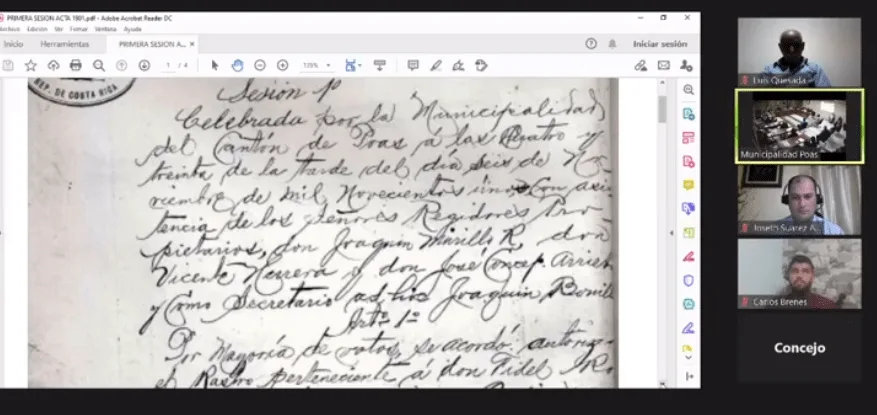 PRIMERA SESION ACTA 1901.pdf - Adobe Acrobat Reader DC
Archivo Edición Ver Firmar Ventana Ayuda
Inicio Herramientas PRIMERA SESION A... × Iniciar sesión
1 / 4
REP. DE COSTA RICA
Sesión 1ª
Celebrada por la Municipalidad
del Cantón de Poas á las Cuatro y
treinta de la tarde del día seis de No
viembre de mil Novecientos uno Con asis
tencia de los Señores Regidores Pro
pietarios, don Joaquin Murillo R, don
Vicente Herrera y don José Concep. Arriet
y Como Secretario ad hoc Joaquin Bonill
Artº 1º
Por Mayoría de votos, se acordó:
el Rastro perteneciente á don Fidel
Luis Quesada
Municipalidad Poas
Carlos Brenes
Concejo